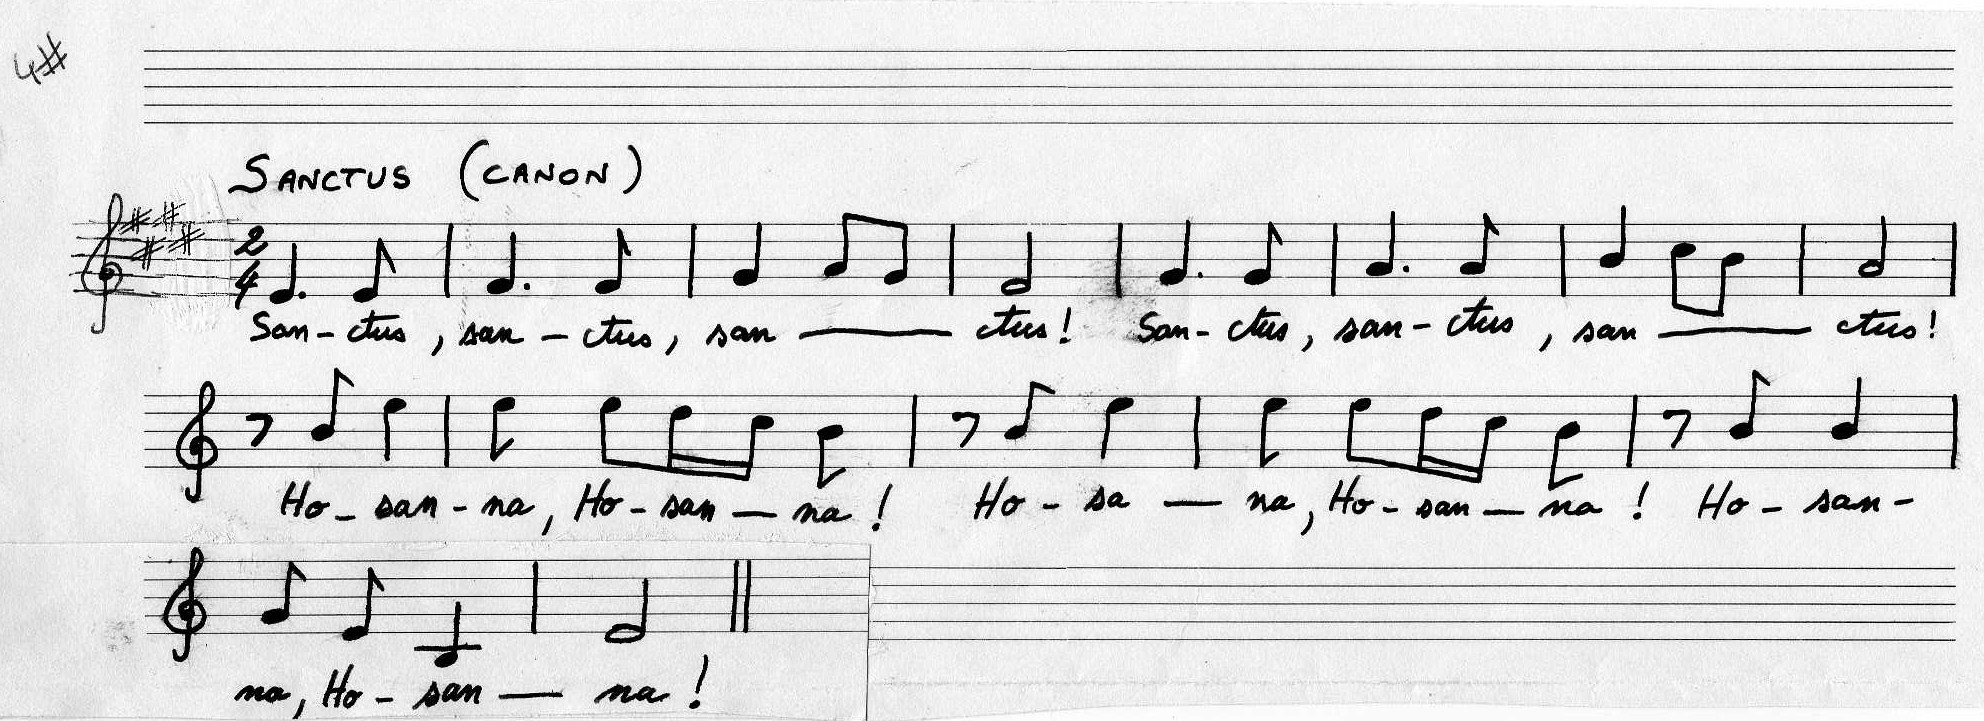 4#
SANCTUS (CANON)
2
4
San-ctus, san-ctus, san——ctus! San-ctus, san-ctus, san——ctus!
Ho-san-na, Ho-san—na! Ho-sa—na, Ho-san—na! Ho-san-
na, Ho-san—na!